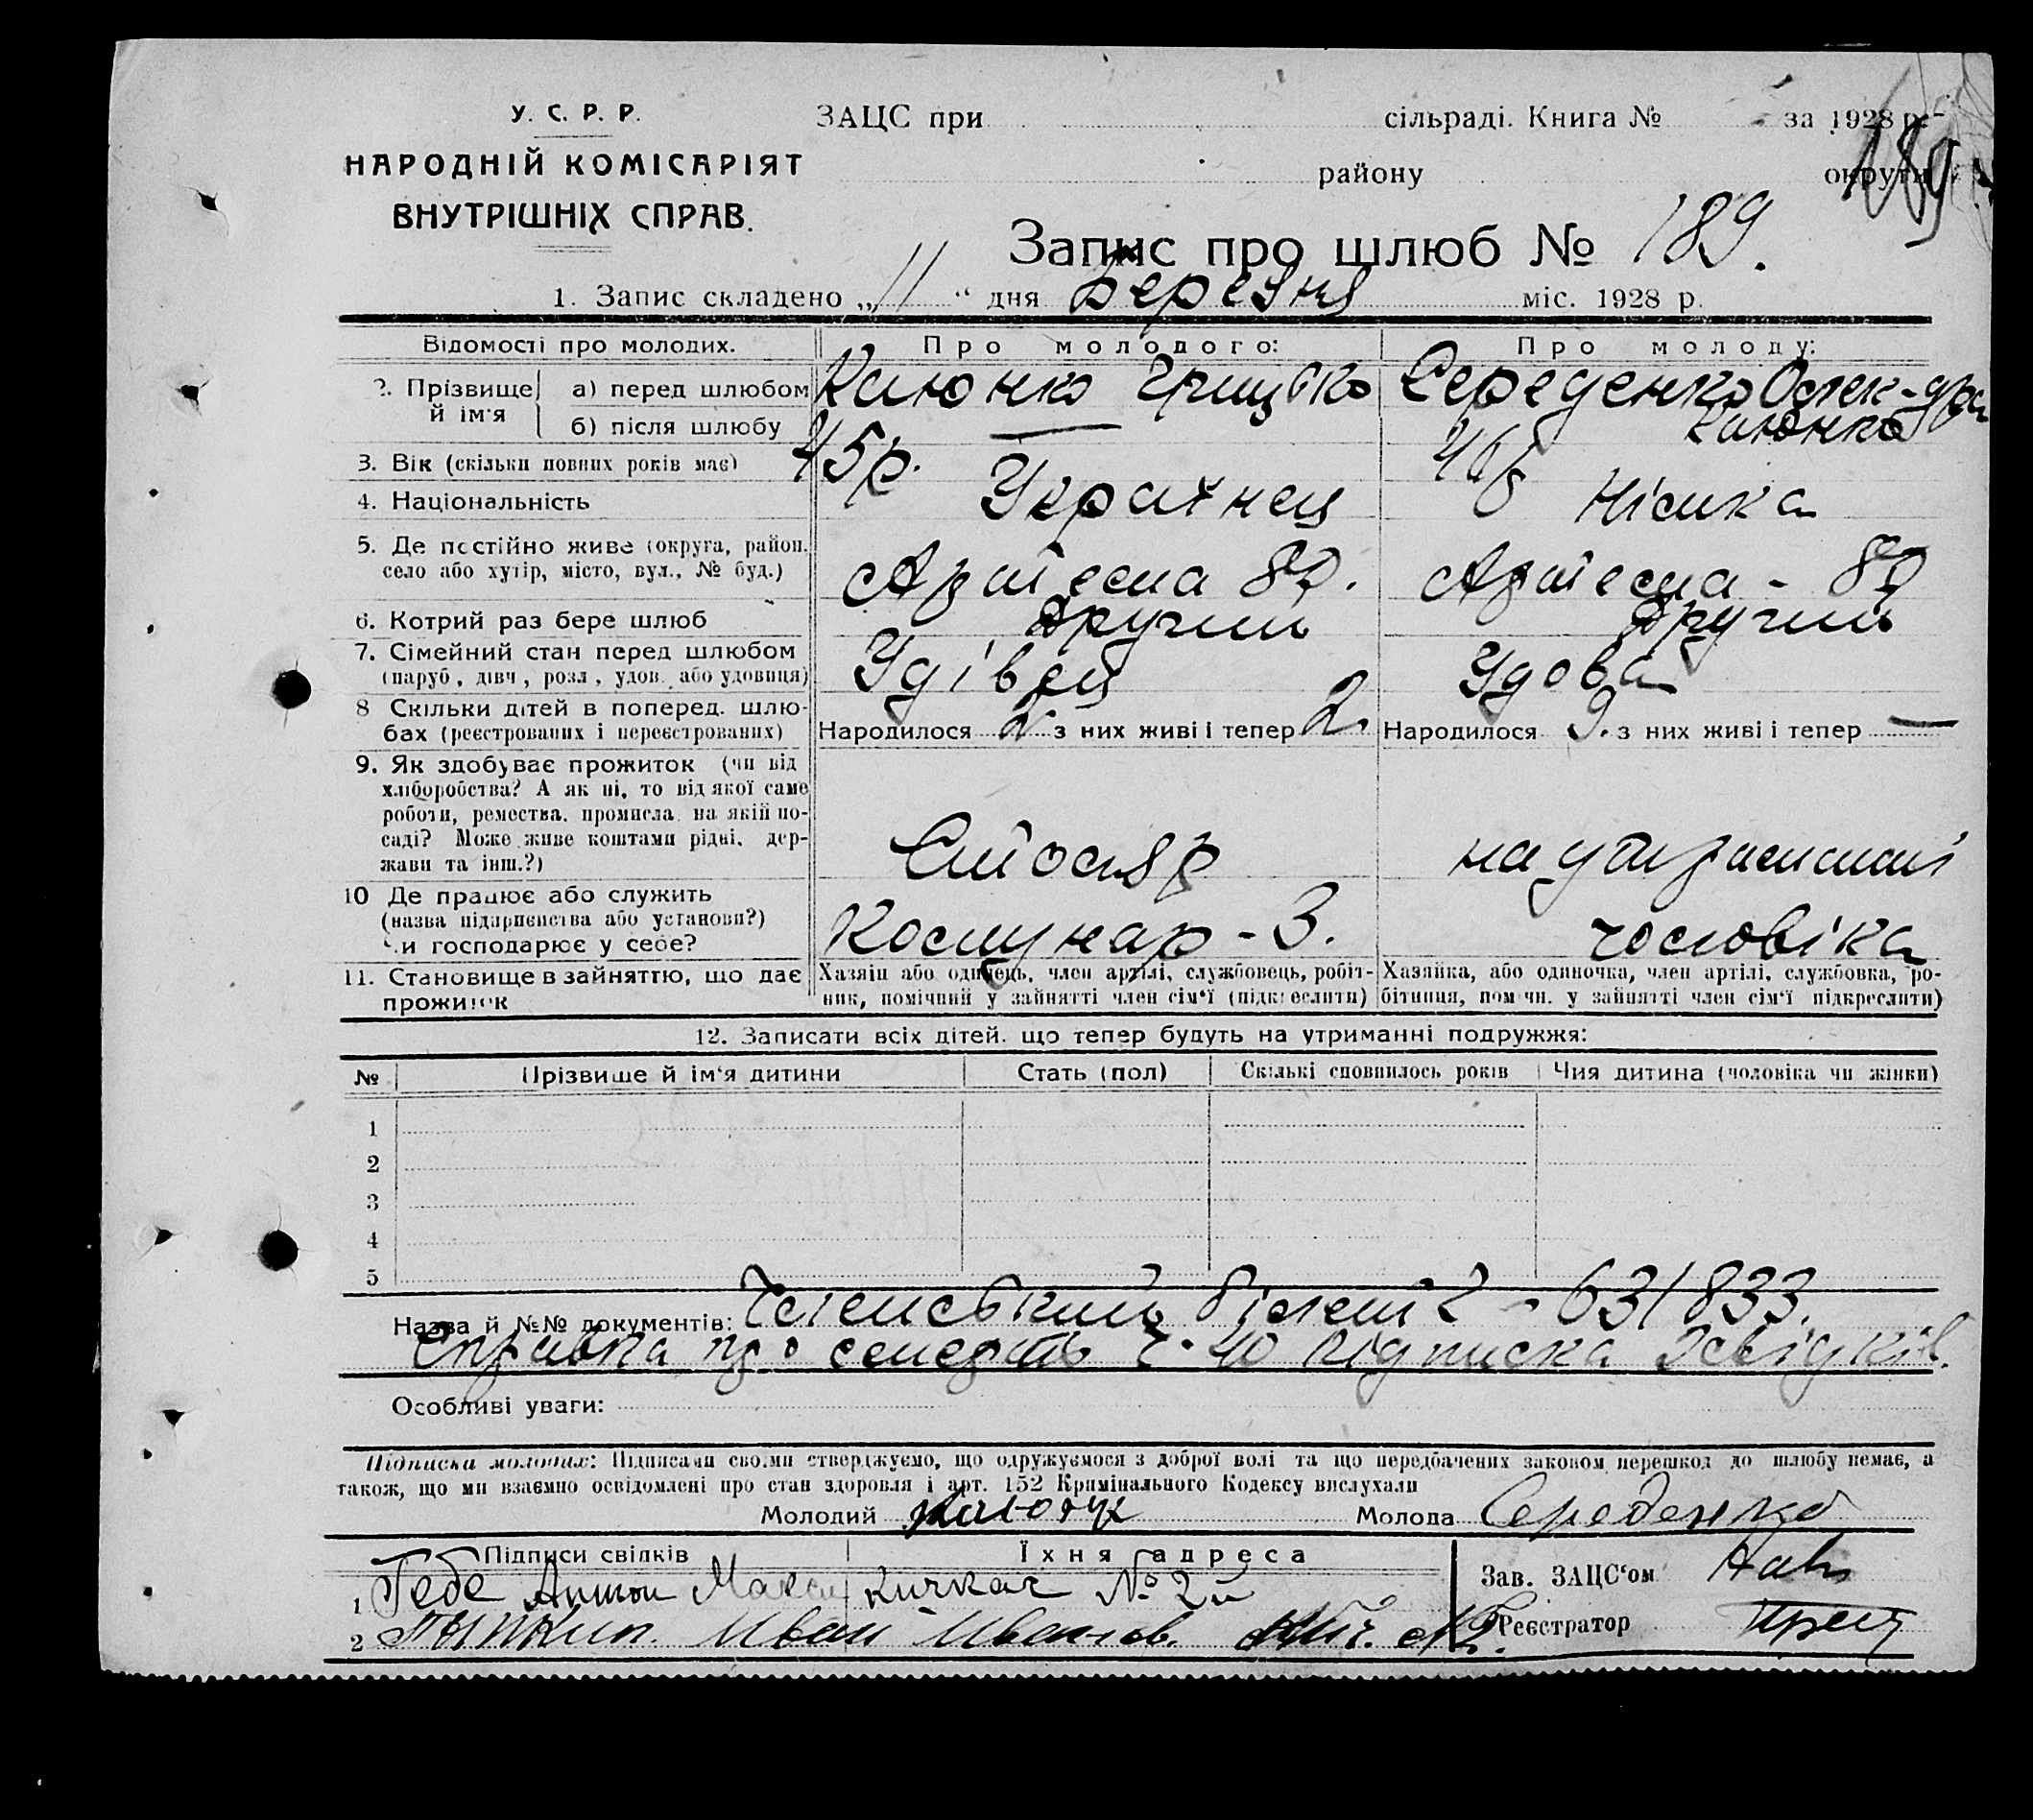 У. С. Р. Р.
НАРОДНІЙ КОМІСАРІЯТ
ВНУТРІШНІХ СПРАВ.
ЗАЦС при сільраді. Книга № за 1928 р.
району округи
189
Запис про шлюб № 189.
1. Запис складено „11“ дня Березня міс. 1928 р.
Відомості про молодих. Про молодого: Про молоду:
2. Прізвище й ім'я
а) перед шлюбом Клюнко Грицько Середенко Олек-дра
б) після шлюбу Клюнко
3. Вік (скільки повних років має) 45 р. 46 р
4. Національність Українец Німка
5. Де постійно живе (округа, район, село або хутір, місто, вул., № буд.) Артема 82. Артема - 82
6. Котрий раз бере шлюб другий другий
7. Сімейний стан перед шлюбом (паруб., дівч., розл., удов. або удовиця) Удівец Удова
8 Скільки дітей в поперед. шлюбах (реєстрованих і нереєстрованих) Народилося 2 з них живі і тепер 2. Народилося 9. з них живі і тепер —
9. Як здобуває прожиток (чи від хліборобства? А як ні, то від якої саме роботи, ремества, промисла, на якій посаді? Може живе коштами рідні, держави та інш.?) Столяр на утриманні
10 Де працює або служить (назва підприєнства або установи?) Чи господарює у себе? Комунар - 3. чоловіка
11. Становище в зайняттю, що дає прожиток
Хазяін або одинець, член артілі, службовець, робітник, помічний у зайнятті член сім'ї (підкреслити)
Хазяйка, або одиночка, член артілі, службовка, робітниця, помічн. у зайнятті член сім'ї підкреслити)
12. Записати всіх дітей, що тепер будуть на утриманні подружжя:
№ Прізвище й ім'я дитини Стать (пол) Скількі сповнилось років Чия дитина (чоловіка чи жінки)
1
2
3
4
5
Назва й №№ документів: Членський білет ч - 631833.
Справка про смерть ч. 40 підписка 2 свідків.
Особливі уваги:
Підписка молодих: Підписами своїми стверджуємо, що одружуємося з доброї волі та що передбачених законом перешкод до шлюбу немає, а
також, що ми взаємно освідомлені про стан здоровля і арт. 152 Кримінального Кодексу вислухали
Молодий Молода Середенко
Підписи свідків Їхня адреса
1 Гебе Антон Кичкас № 2й
2 Иван Иванов.
Зав. ЗАЦС'ом
Реєстратор